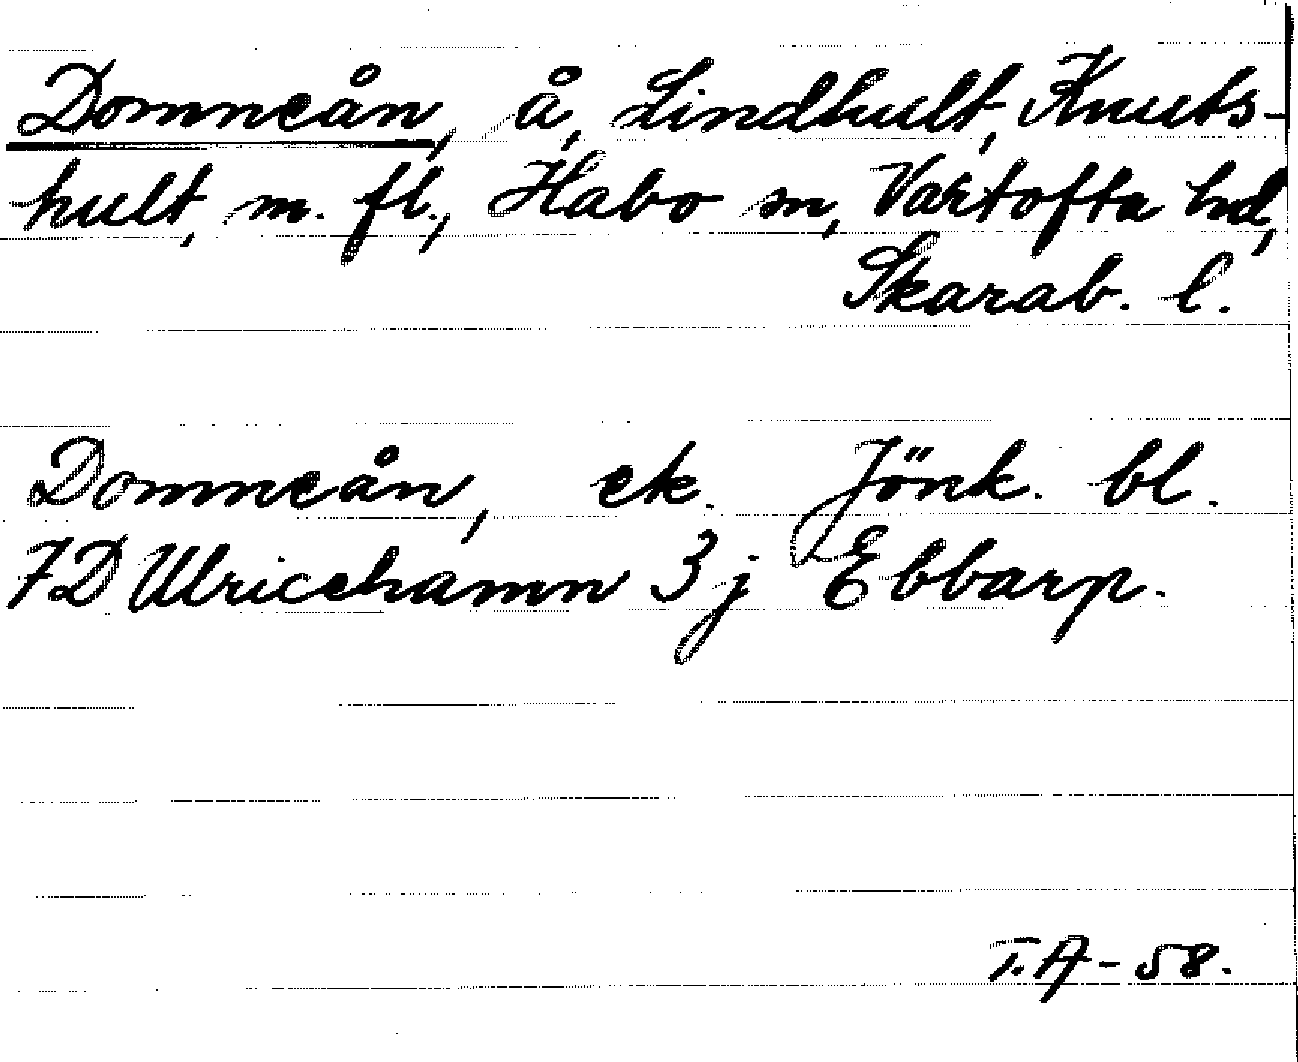 Domneån, å, Lindhult, Knuts-
hult, m. fl., Habo sn, Vartofta hd,
Skarab. l.
Domneån, ek. Jönk. bl.
7D Ulricehamn 3j Ebbarp.
T.A-58.